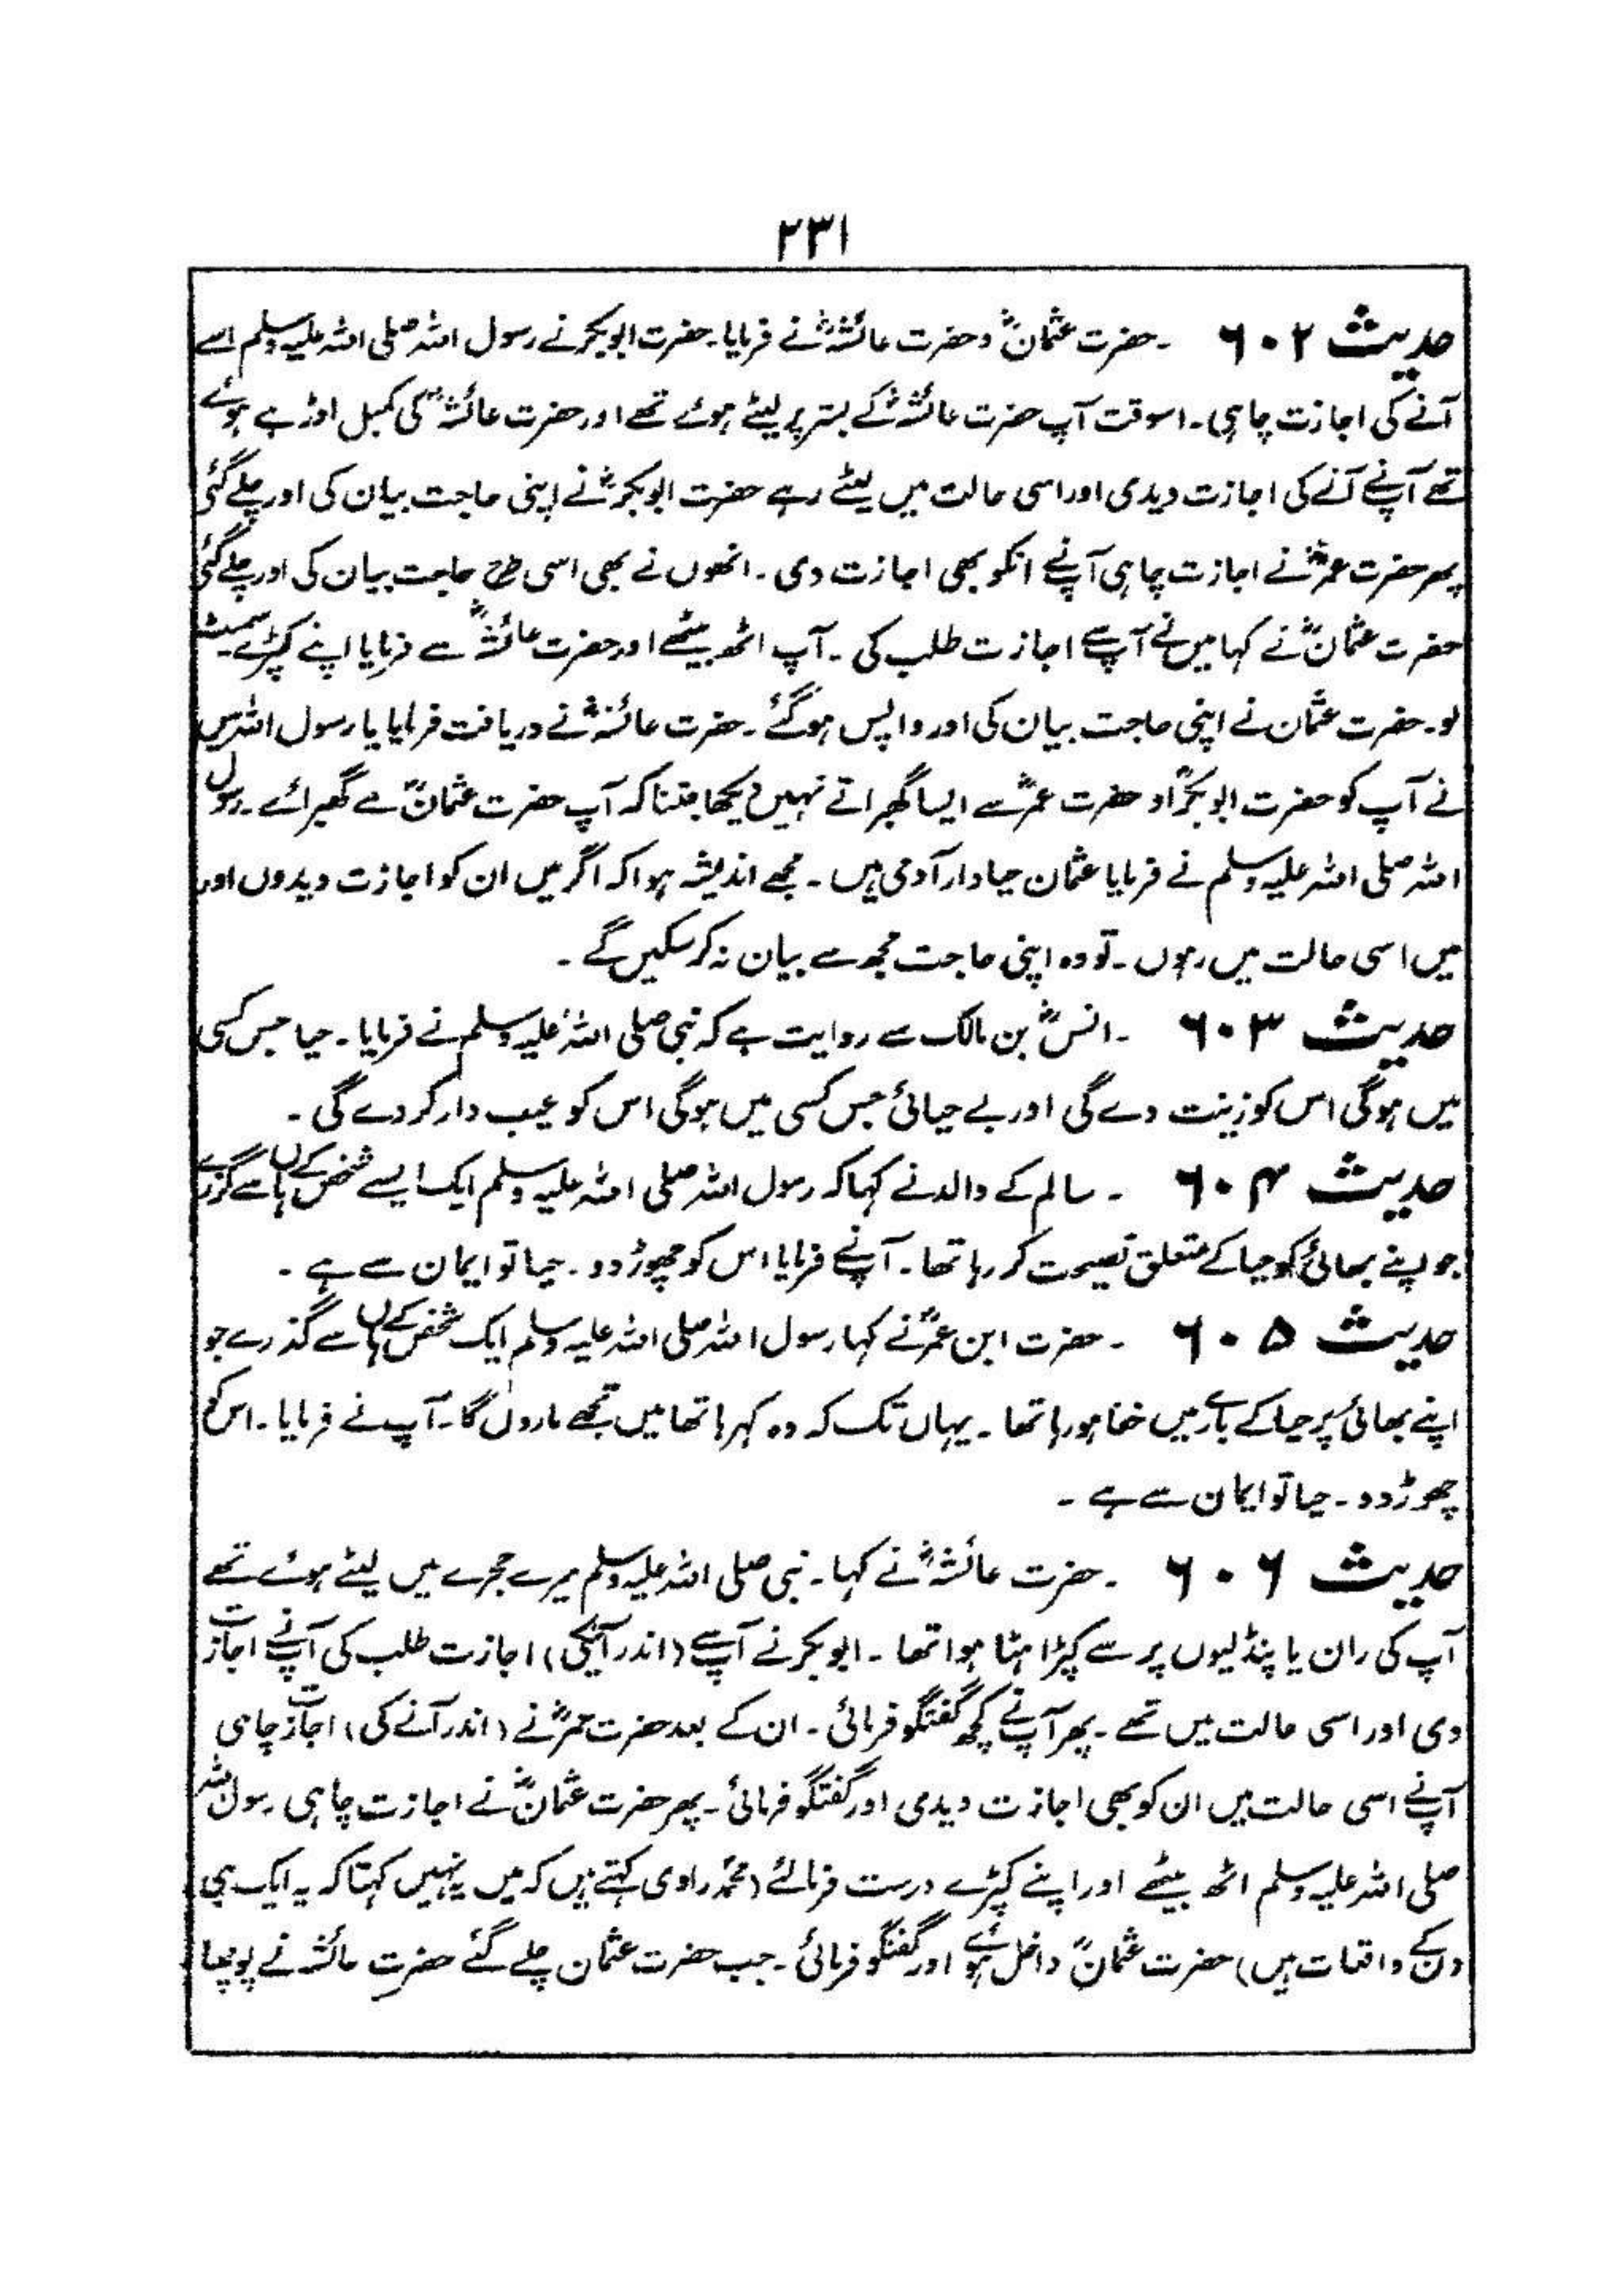 ۲۳۱
حدیث ۶۰۲ ۔ حضرت عثمانؓ و حضرت عائشہؓ نے فرمایا۔ حضرت ابوبکر نے رسول اللہ صلی اللہ علیہ وسلم سے
آنے کی اجازت چاہی۔ اسوقت آپ حضرت عائشہؓ کے بستر پر لیٹے ہوئے تھے اور حضرت عائشہؓ کی کمبل اوڑہے ہوئے
تھے آپنے آنے کی اجازت دیدی اور اسی حالت میں لیٹے رہے حضرت ابوبکرؓ نے اپنی حاجت بیان کی اور چلے گئی
پھر حضرت عمرؓ نے اجازت چاہی آپنے انکو بھی اجازت دی۔ انھوں نے بھی اسی طرح حاجت بیان کی اور چلے گئی
حضرت عثمانؓ نے کہا میں نے آپ سے اجازت طلب کی۔ آپ اٹھ بیٹھے اور حضرت عائشہؓ سے فرمایا اپنے کپڑے سمیٹ
لو۔ حضرت عثمان نے اپنی حاجت بیان کی اور واپس ہوگئے۔ حضرت عائشہؓ نے دریافت فرمایا یا رسول اللہ میں
نے آپ کو حضرت ابوبکرؓ اور حضرت عمرؓ سے ایسا گھبراتے نہیں دیکھا جتنا کہ آپ حضرت عثمانؓ سے گھبرائے۔ رسول
اللہ صلی اللہ علیہ وسلم نے فرمایا عثمان حیادار آدمی ہیں۔ مجھے اندیشہ ہوا کہ اگر میں ان کو اجازت دیدوں اور
میں اسی حالت میں رہوں۔ تو وہ اپنی حاجت مجھ سے بیان نہ کرسکیں گے۔
حدیث ۶۰۳ ۔ انسؓ بن مالک سے روایت ہے کہ نبی صلی اللہ علیہ وسلم نے فرمایا۔ حیا جس کسی
میں ہوگی اس کو زینت دے گی اور بے حیائی جس کسی میں ہوگی اس کو عیب دار کردے گی۔
حدیث ۶۰۴ ۔ سالم کے والد نے کہا کہ رسول اللہ صلی اللہ علیہ وسلم ایک ایسے شخص کے ہاں سے گزرے
جو اپنے بھائی کو حیا کے متعلق نصیحت کر رہا تھا۔ آپنے فرمایا اس کو چھوڑ دو۔ حیا تو ایمان سے ہے۔
حدیث ۶۰۵ ۔ حضرت ابن عمرؓ نے کہا رسول اللہ صلی اللہ علیہ وسلم ایک شخص کے ہاں سے گذرے جو
اپنے بھائی پر حیا کے بارے میں خفا ہورہا تھا۔ یہاں تک کہ وہ کہہ رہا تھا میں تجھے ماروں گا۔ آپ نے فرمایا۔ اس کو
چھوڑ دو۔ حیا تو ایمان سے ہے۔
حدیث ۶۰۶ ۔ حضرت عائشہؓ نے کہا۔ نبی صلی اللہ علیہ وسلم میرے حجرے میں لیٹے ہوئے تھے
آپ کی ران یا پنڈلیوں پر سے کپڑا ہٹا ہوا تھا۔ ابوبکر نے آپ سے (اندر آنیکی) اجازت طلب کی آپنے اجازت
دی اور اسی حالت میں تھے۔ پھر آپ نے کچھ گفتگو فرمائی۔ ان کے بعد حضرت عمرؓ نے (اندر آنے کی) اجازت چاہی
آپنے اسی حالت میں ان کو بھی اجازت دیدی اور گفتگو فرمائی۔ پھر حضرت عثمانؓ نے اجازت چاہی رسول اللہ
صلی اللہ علیہ وسلم اٹھ بیٹھے اور اپنے کپڑے درست فرمالئے (محمدؐ راوی کہتے ہیں کہ میں یہ نہیں کہتا کہ یہ ایک ہی
دن کے واقعات ہیں) حضرت عثمانؓ داخل ہوئے اور گفتگو فرمائی۔ جب حضرت عثمان چلے گئے حضرت عائشہ نے پوچھا